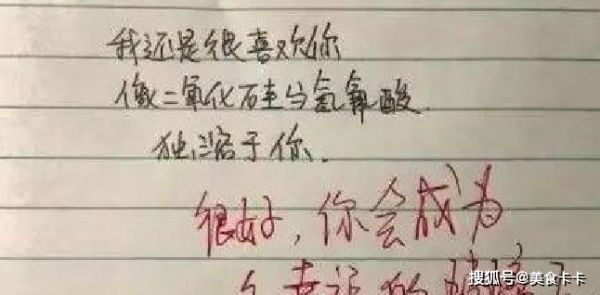 我还是很喜欢你
像二氧化硅与氢氟酸.
独溶于你.
很好,你会成为
搜狐号@美食卡卡